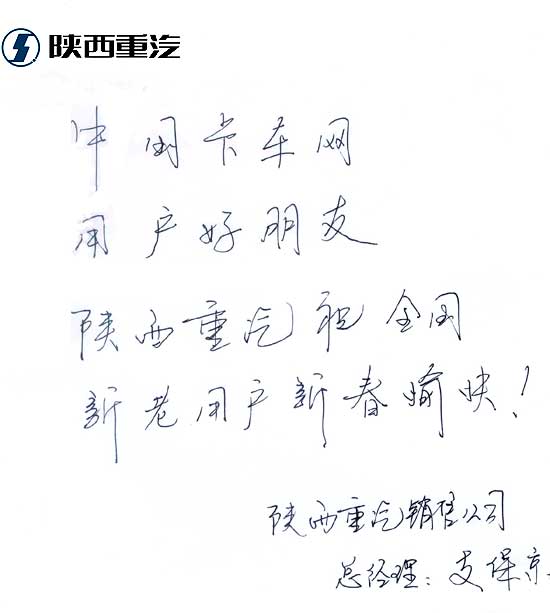 陕西重汽
中国卡车网
用户好朋友
陕西重汽祝全国
新老用户新春愉快!
陕西重汽销售公司
总经理:支保京